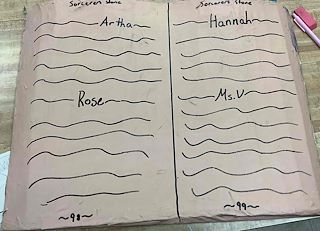 Sorcerers Stone
Artha
Rose
~98~
Sorcerers Stone
Hannah
Ms.V
~99~